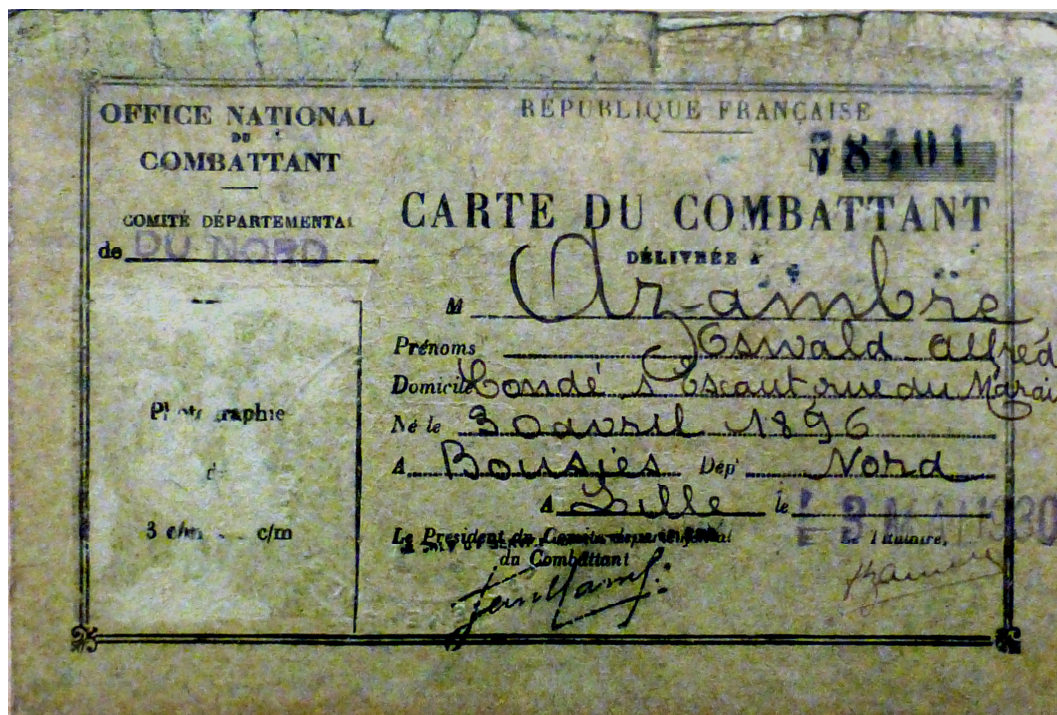 OFFICE NATIONAL
DU
COMBATTANT
COMITÉ DÉPARTEMENTAL
de DU NORD
Photographie
de
3 c/m c/m
RÉPUBLIQUE FRANÇAISE
N° 78401
CARTE DU COMBATTANT
DÉLIVRÉE A
M
Prénoms Oswald Alfred
Domicile Condé s/Escaut rue du Marais
Né le 30 avril 1896
A Bousies Dépt Nord
A Lille le 3 MAI 1930
Le Président du Comité départemental
du Combattant
Le Titulaire,